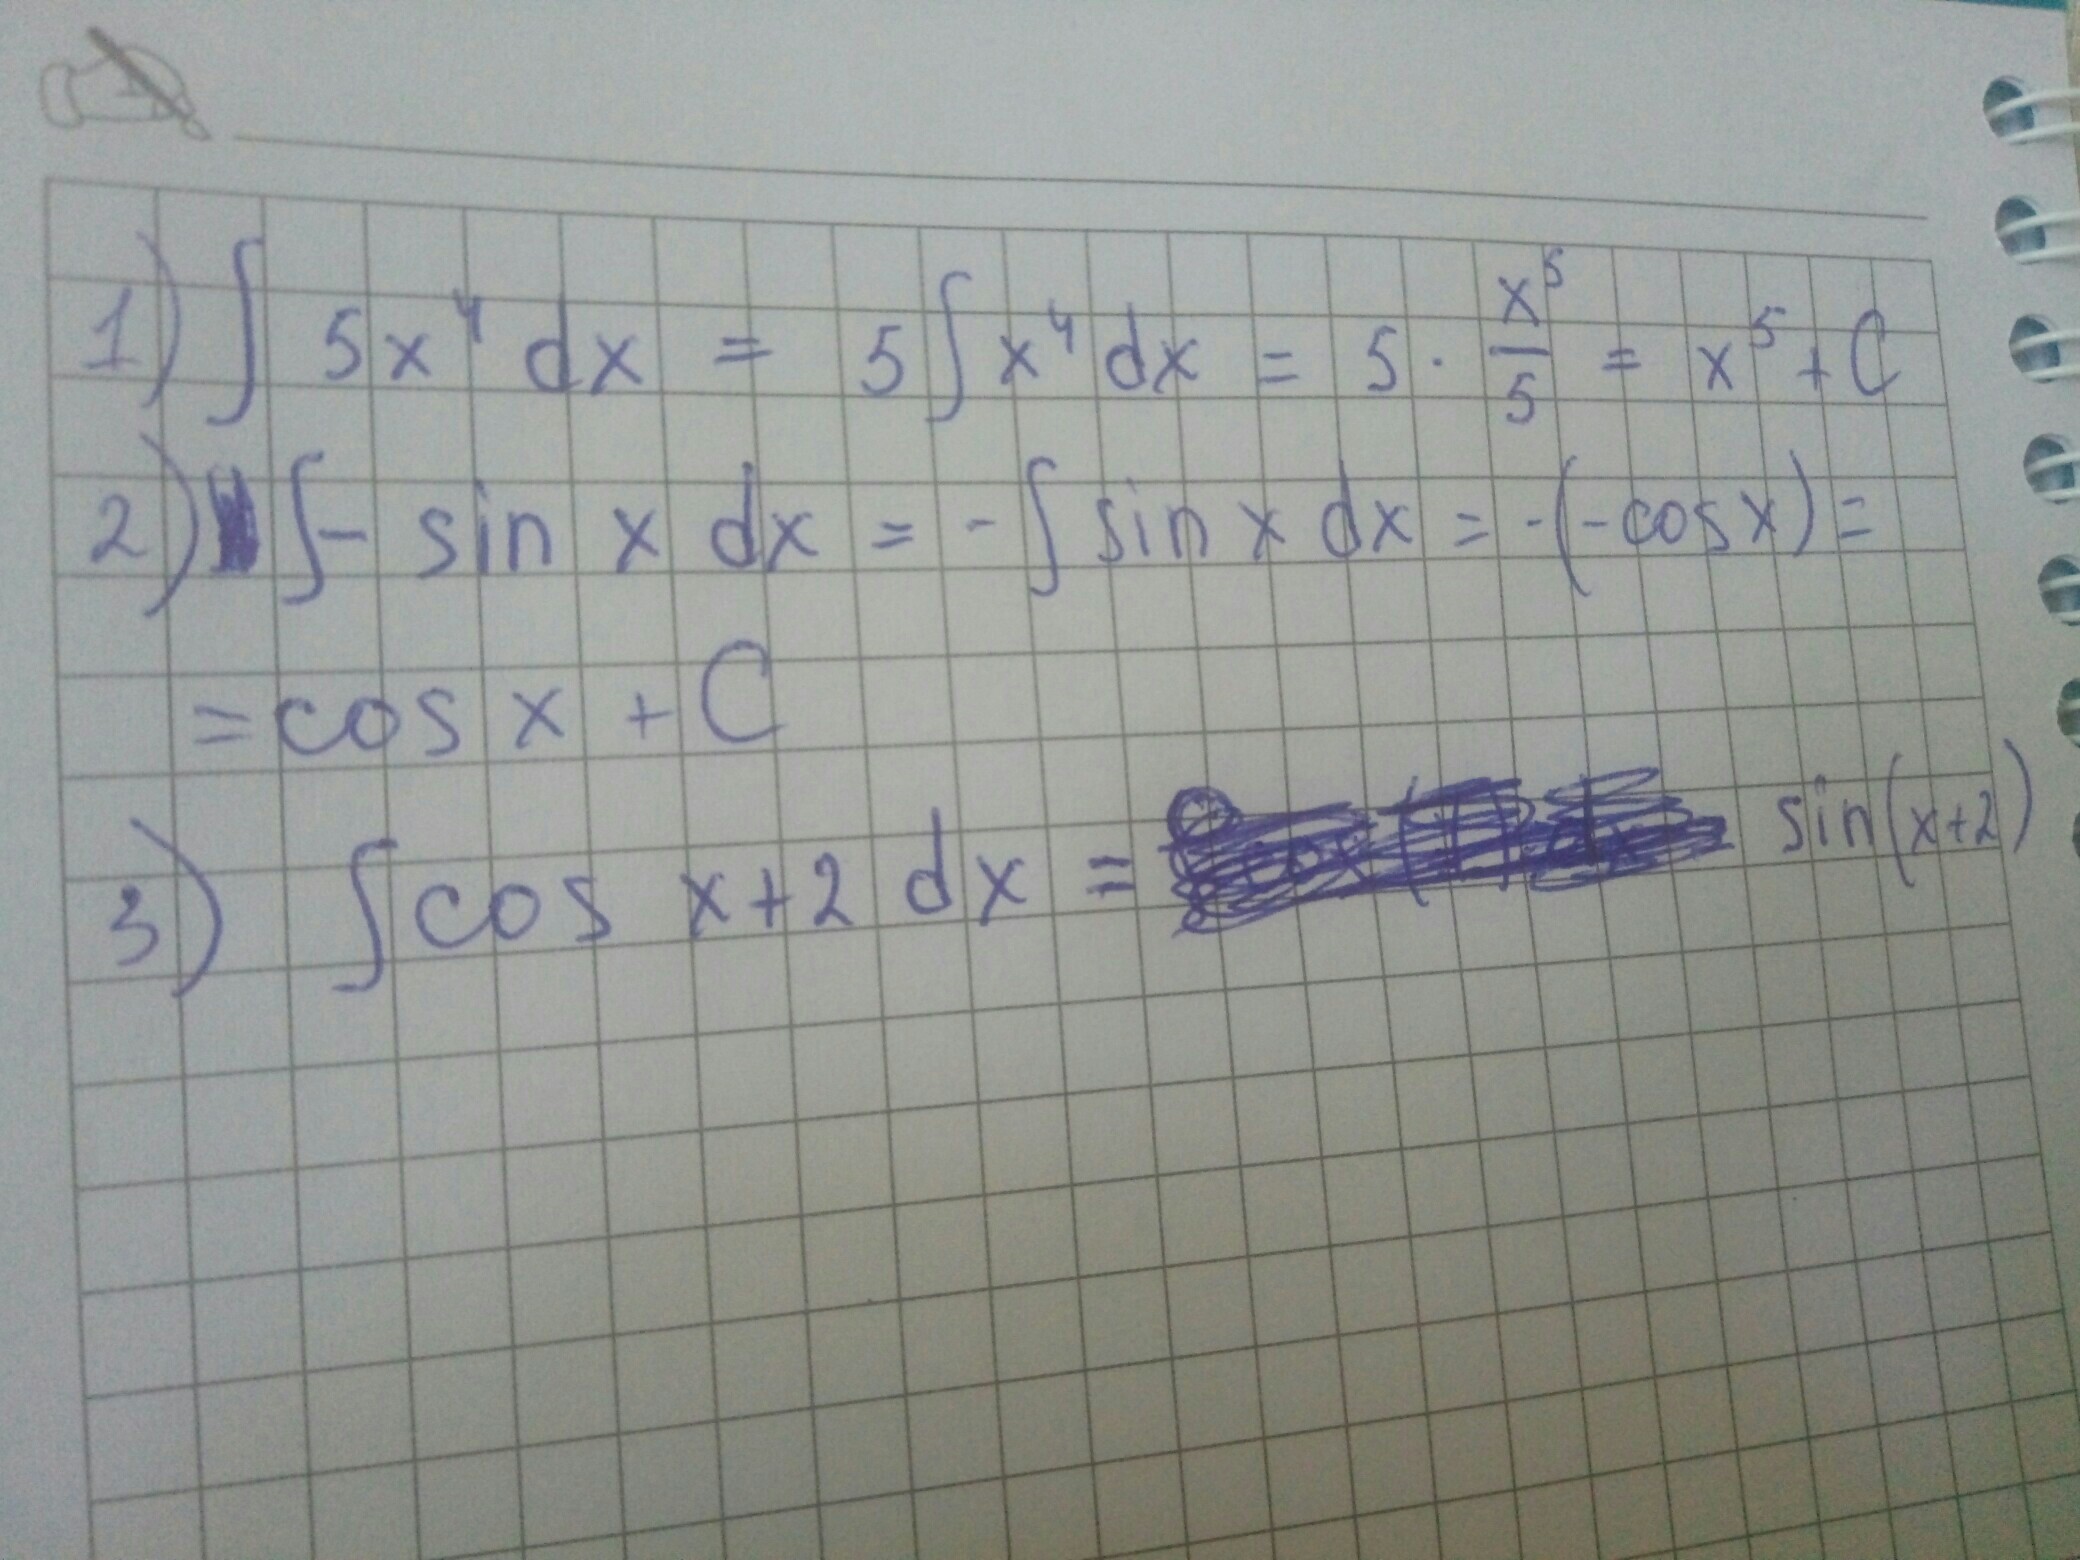 1) ∫ 5x⁴ dx = 5 ∫ x⁴ dx = 5 · x⁵/5 = x⁵ + C
2) ∫ - sin x dx = - ∫ sin x dx = -(-cos x) =
= cos x + C
3) ∫ cos x+2 dx = sin(x+2)